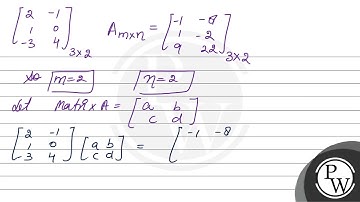 [2 -1
1 0
-3 4]3×2 Am×n = [-1 -8
1 -2
9 22]3×2
so m=2 n=2
let Matrix A = [a b
c d]
[2 -1
1 0
3 4] [a b
c d] = [-1 -8
P
W